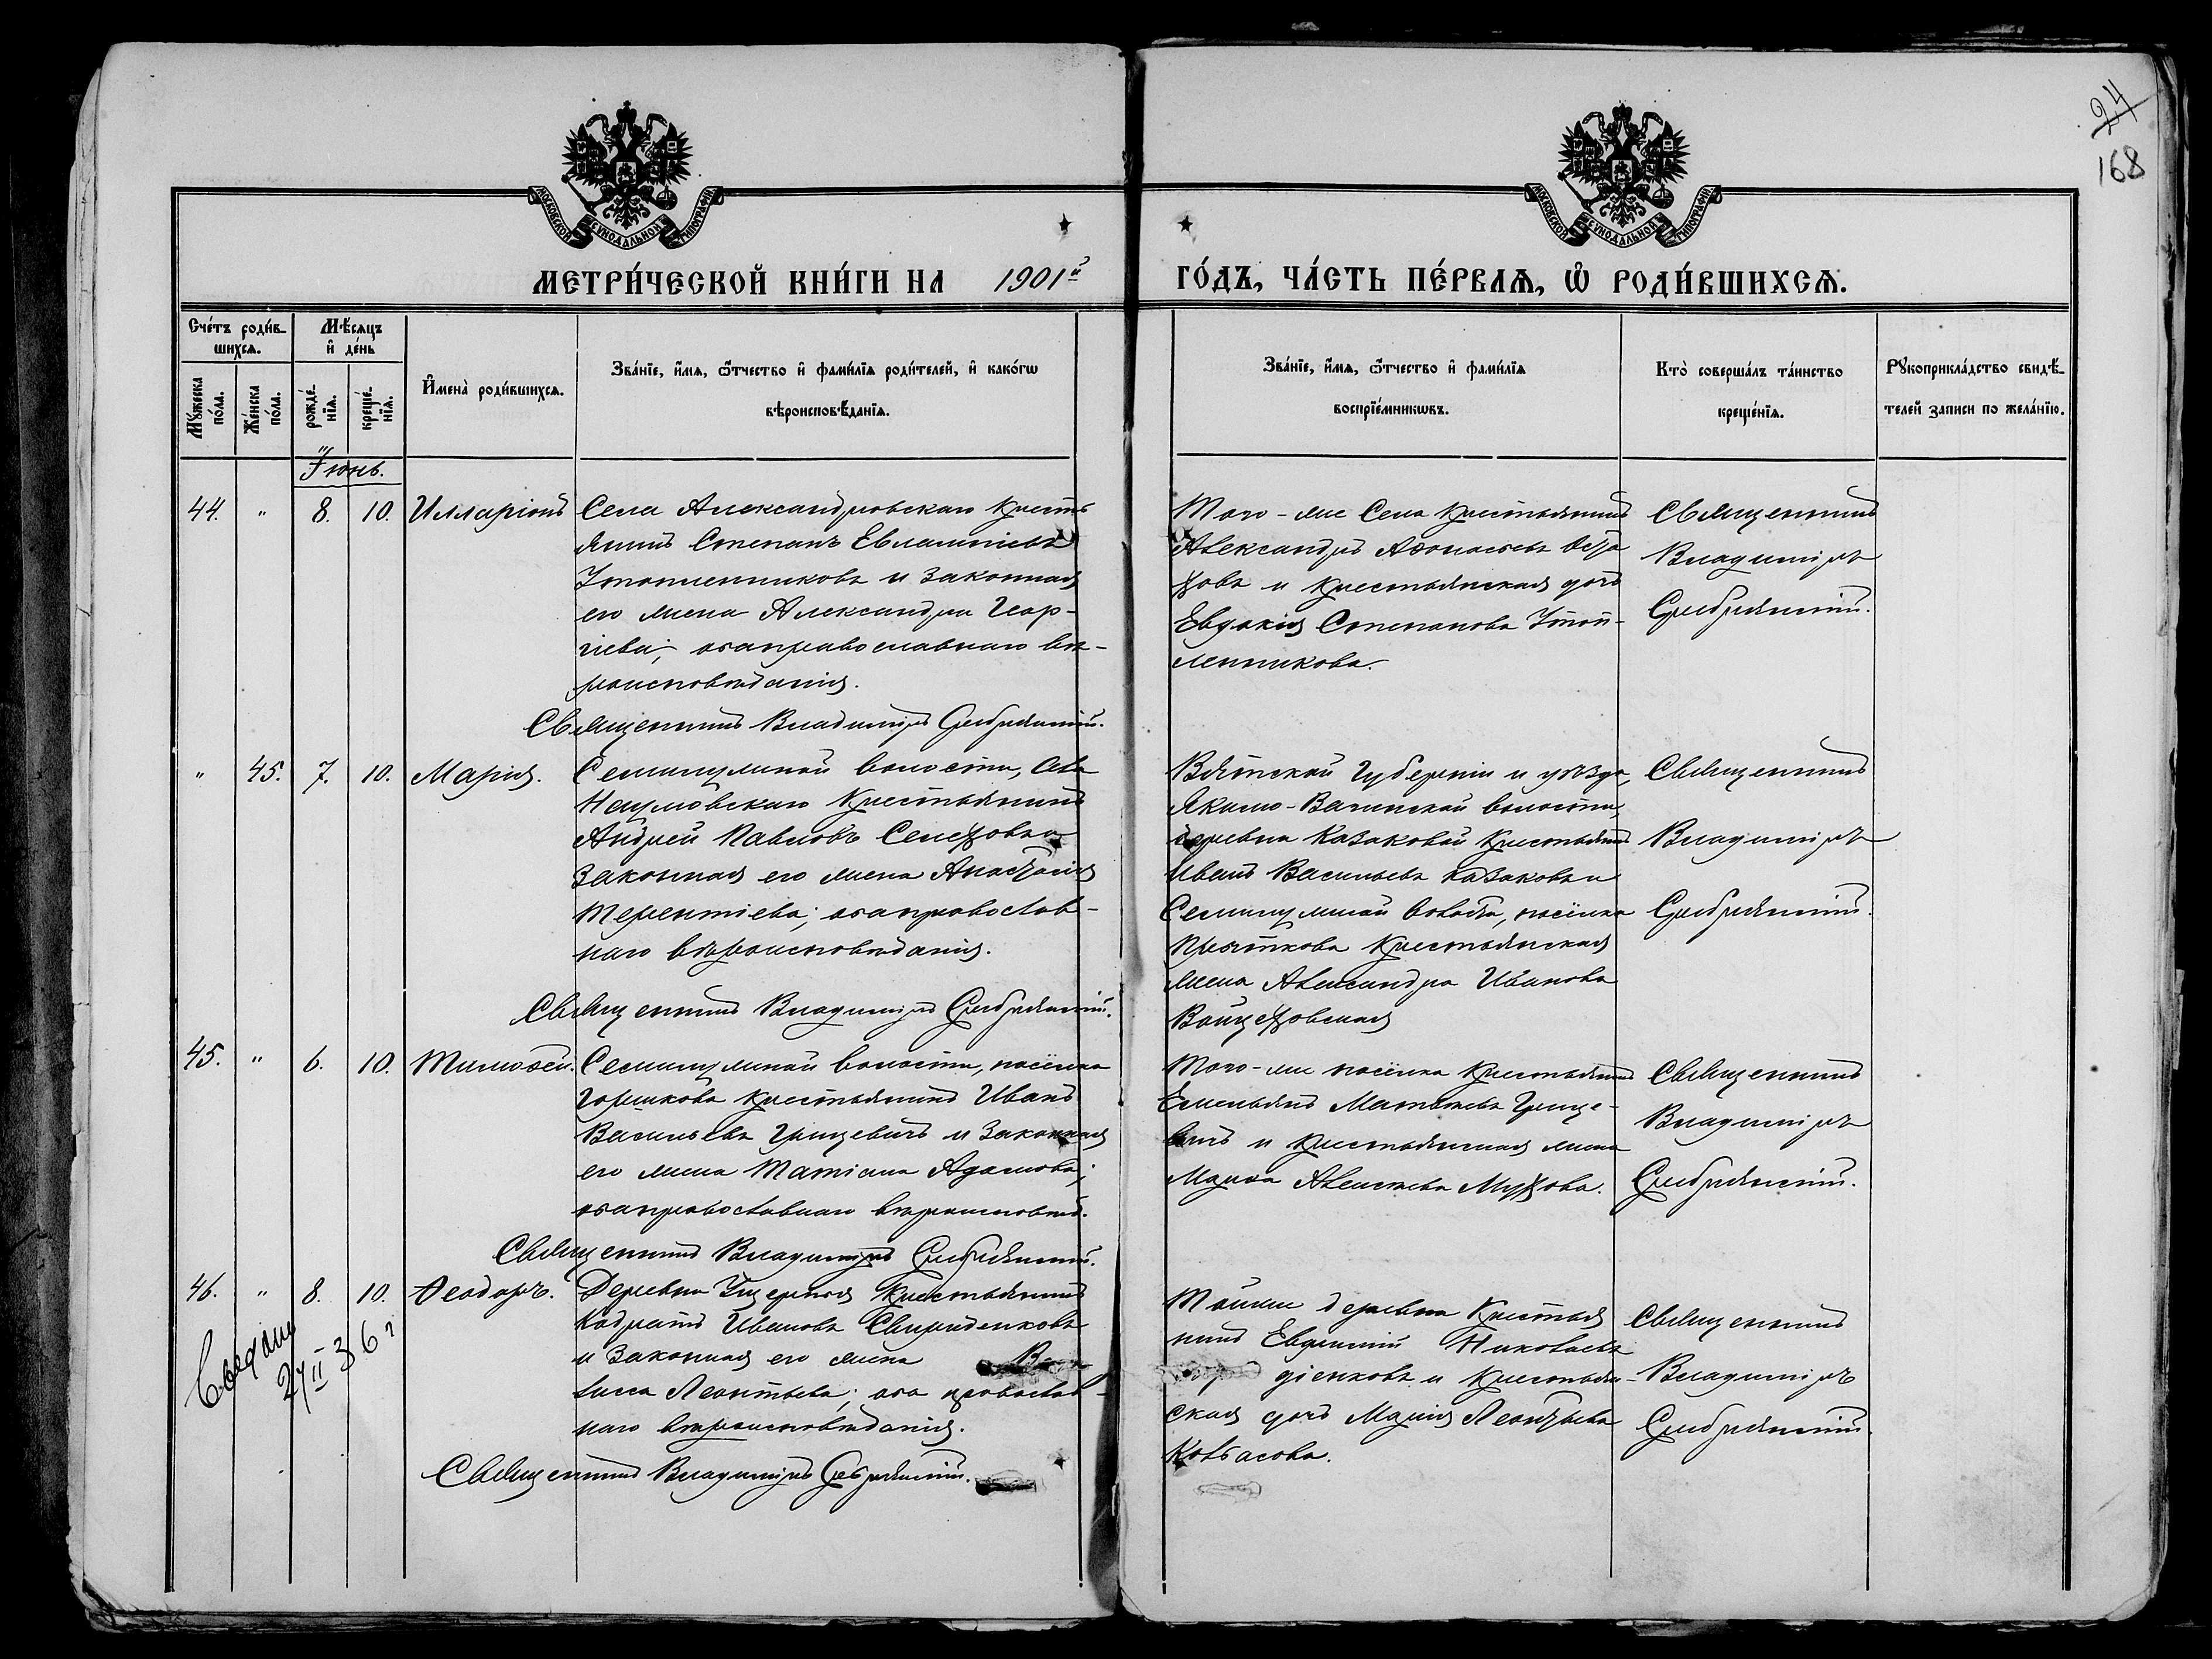 24
168
МОСКОВСКОЙ СѴНОДАЛЬНОЙ ТИПОГРАФІИ
МОСКОВСКОЙ СѴНОДАЛЬНОЙ ТИПОГРАФІИ
МЕТРИ́ЧЕСКОЙ КНИ́ГИ НА 1901й ГО́ДЪ, ЧА́СТЬ ПЕ́РВАѦ, Ѡ҆ РОДИ́ВШИХСѦ.
Сче́тъ роди́в-
шихсѧ.
Мꙋжеска
по́ла.
Же́нска
по́ла.
Мѣ́сѧцъ
и҆ де́нь
рожде́-
нїѧ.
креще́-
нїѧ.
И҆мена̀ роди́вшихсѧ.
Зва́нїе, и҆́мѧ, ѻ҆́тчество и҆ фами́лїѧ роди́телей, и҆ како́гѡ
вѣроисповѣ́данїѧ.
Зва́нїе, и҆́мѧ, ѻ҆́тчество и҆ фами́лїѧ
воспрїе́мникѡвъ.
Кто̀ соверша́лъ та́инство
креще́нїѧ.
Рꙋкоприкла́дство свидѣ́-
телей записи по жела́нїю.
Іюнь.
44. " 8. 10. Илларіонъ
Села Александровскаго Кресть
янинъ Степанъ Евлампіевъ
Утопленниковъ и законная
его жена Александра Геор-
гіева; оба православнаго вѣ-
роисповѣданія.
Священникъ Владиміръ Серебрянскій.
Того-же Села Крестьянинъ
Александръ Аѳонасьевъ
и крестьянская дочь
Евдокія Степанова Утоп-
ленникова.
Священникъ
Владиміръ
Серебрянскій.
" 45. 7. 10. Марія.
волости, села
Наумовскаго Крестьянинъ
Андрей Павловъ
законная его жена Анастасія
Терентіева; оба православ-
наго вѣроисповѣданія.
Священникъ Владиміръ Серебрянскій.
Вятской Губерніи и уѣзда,
Якимо-Вагинской волости,
деревни Казаковой Крестьянинъ
Иванъ Васильевъ Казаковъ и
волости, посёлка
Прыткова Крестьянская
жена Александра Иванова
Войцеховская
Священникъ
Владиміръ
Серебрянскій.
45. " 6. 10. Тимоѳей.
волости, посёлка
Горшкова Крестьянинъ Иванъ
Васильевъ Грицевичъ и законная
его жена Татіана Адамова;
оба православнаго вѣроисповѣд.
Священникъ Владиміръ Серебрянскій.
Того-же посёлка Крестьянинъ
Емельянъ Матвѣевъ Грице-
вичъ и крестьянская жена
Марѳа Алексѣева
Священникъ
Владиміръ
Серебрянскій.
46. " 8. 10. Ѳеодоръ.
Деревни Крестьянинъ
Кодратъ Ивановъ Свириденковъ
и законная его жена Ва-
силиса Леонтьева; оба православ-
наго вѣроисповѣданія.
Священникъ Владиміръ Серебрянскій.
Тойже деревни Крестья
нинъ Евдокимъ Николаевъ
діенковъ и Крестьян-
ская дочь Марія Леонтьева
Колбасова.
Священникъ
Владиміръ
Серебрянскій.
27/II 36 г